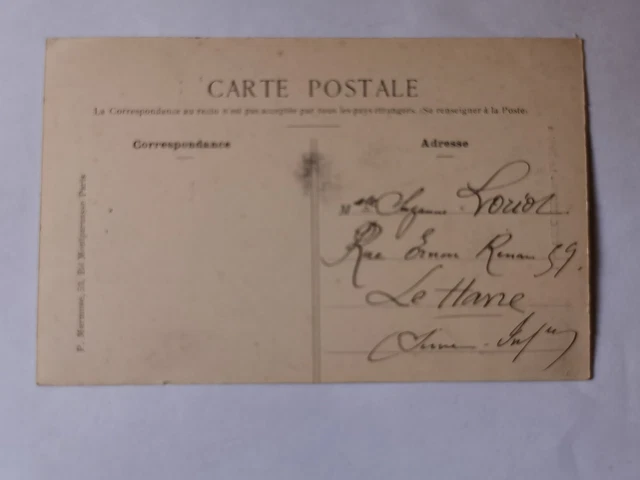 CARTE POSTALE
La Correspondance au recto n'est pas acceptée par tous les pays étrangers. (Se renseigner à la Poste.
Correspondance
Adresse
Mlle Suzanne Loriot
Rue Ernest Renan 59
Le Havre
Seine-Infre
F. Marmuse, Bd Montparnasse, Paris